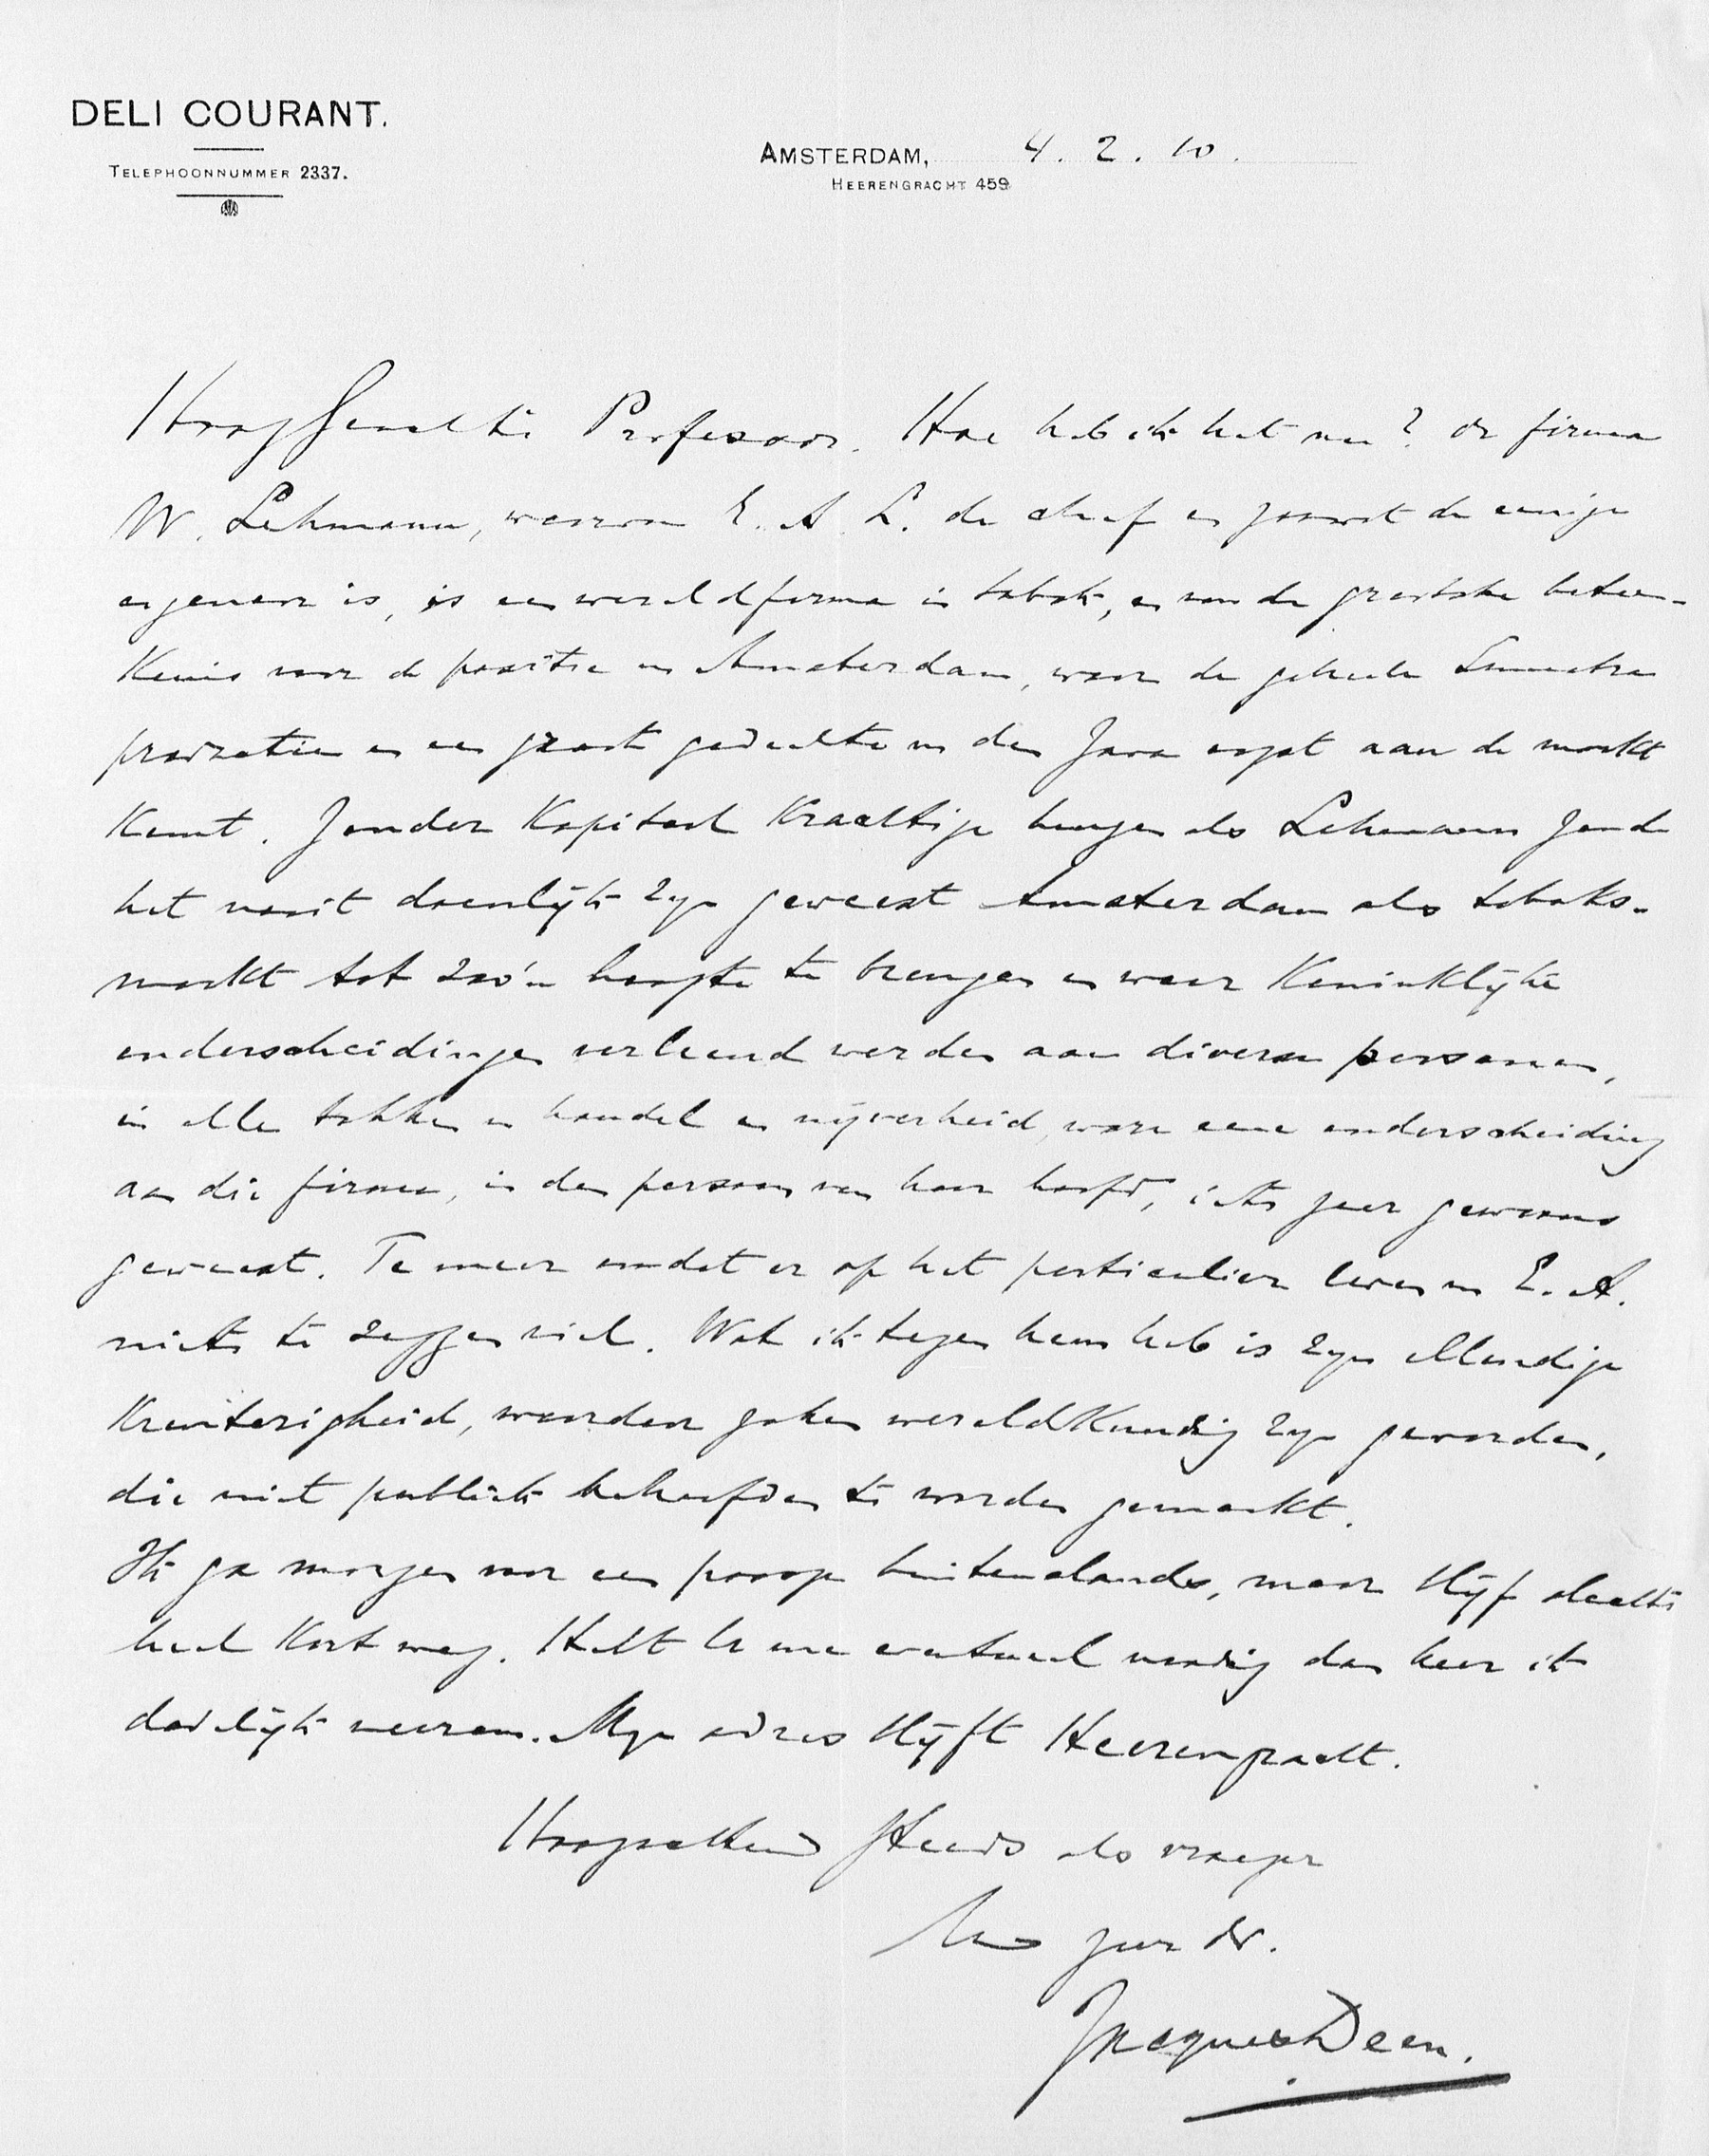 DELI COURANT.
TELEPHOONNUMMER 2337.
AMSTERDAM, 4. 2. 10.
HEERENGRACHT 459
HoogGeachte Professor. Hoe heb ik het nu? de firma
W. Lehmann, waarvan E. A. L. de chef en zoowat de eenige
eigenaar is, is een wereldfirma in tabak, en van de grootste betee-
kenis voor de positie van Amsterdam, waar de geheele Sumatra
productie en een groot gedeelte van den Java oogst aan de markt
komt. Zonder kapitaal krachtige huizen als Lehmann zoude
het nooit doenlijk zijn geweest Amsterdam als tabaks-
markt tot zoo'n hoogte te brengen en waar Koninklijke
onderscheidingen verleend werden aan diverse personen,
in alle takken van handel en nijverheid, ware eene onderscheiding
aan die firma, in den persoon van haar hoofd, iets zeer gewoons
geweest. Te meer omdat er op het particulier leven van E. A.
niets te zeggen viel. Wat ik tegen hem heb is zijn ellendige
kruiterigheid, waardoor zaken wereldkundig zijn geworden,
die niet publiek behoefden te worden gemaakt.
Ik ga morgen voor een poosje buitenslands, maar blijf slechts
heel kort weg. Hebt U me eventueel noodig dan keer ik
dadelijk weerom. Mijn adres blijft Heerengracht.
Hoogachtend Steeds als vroeger
Uw zeer dv.
Jacques Deen.